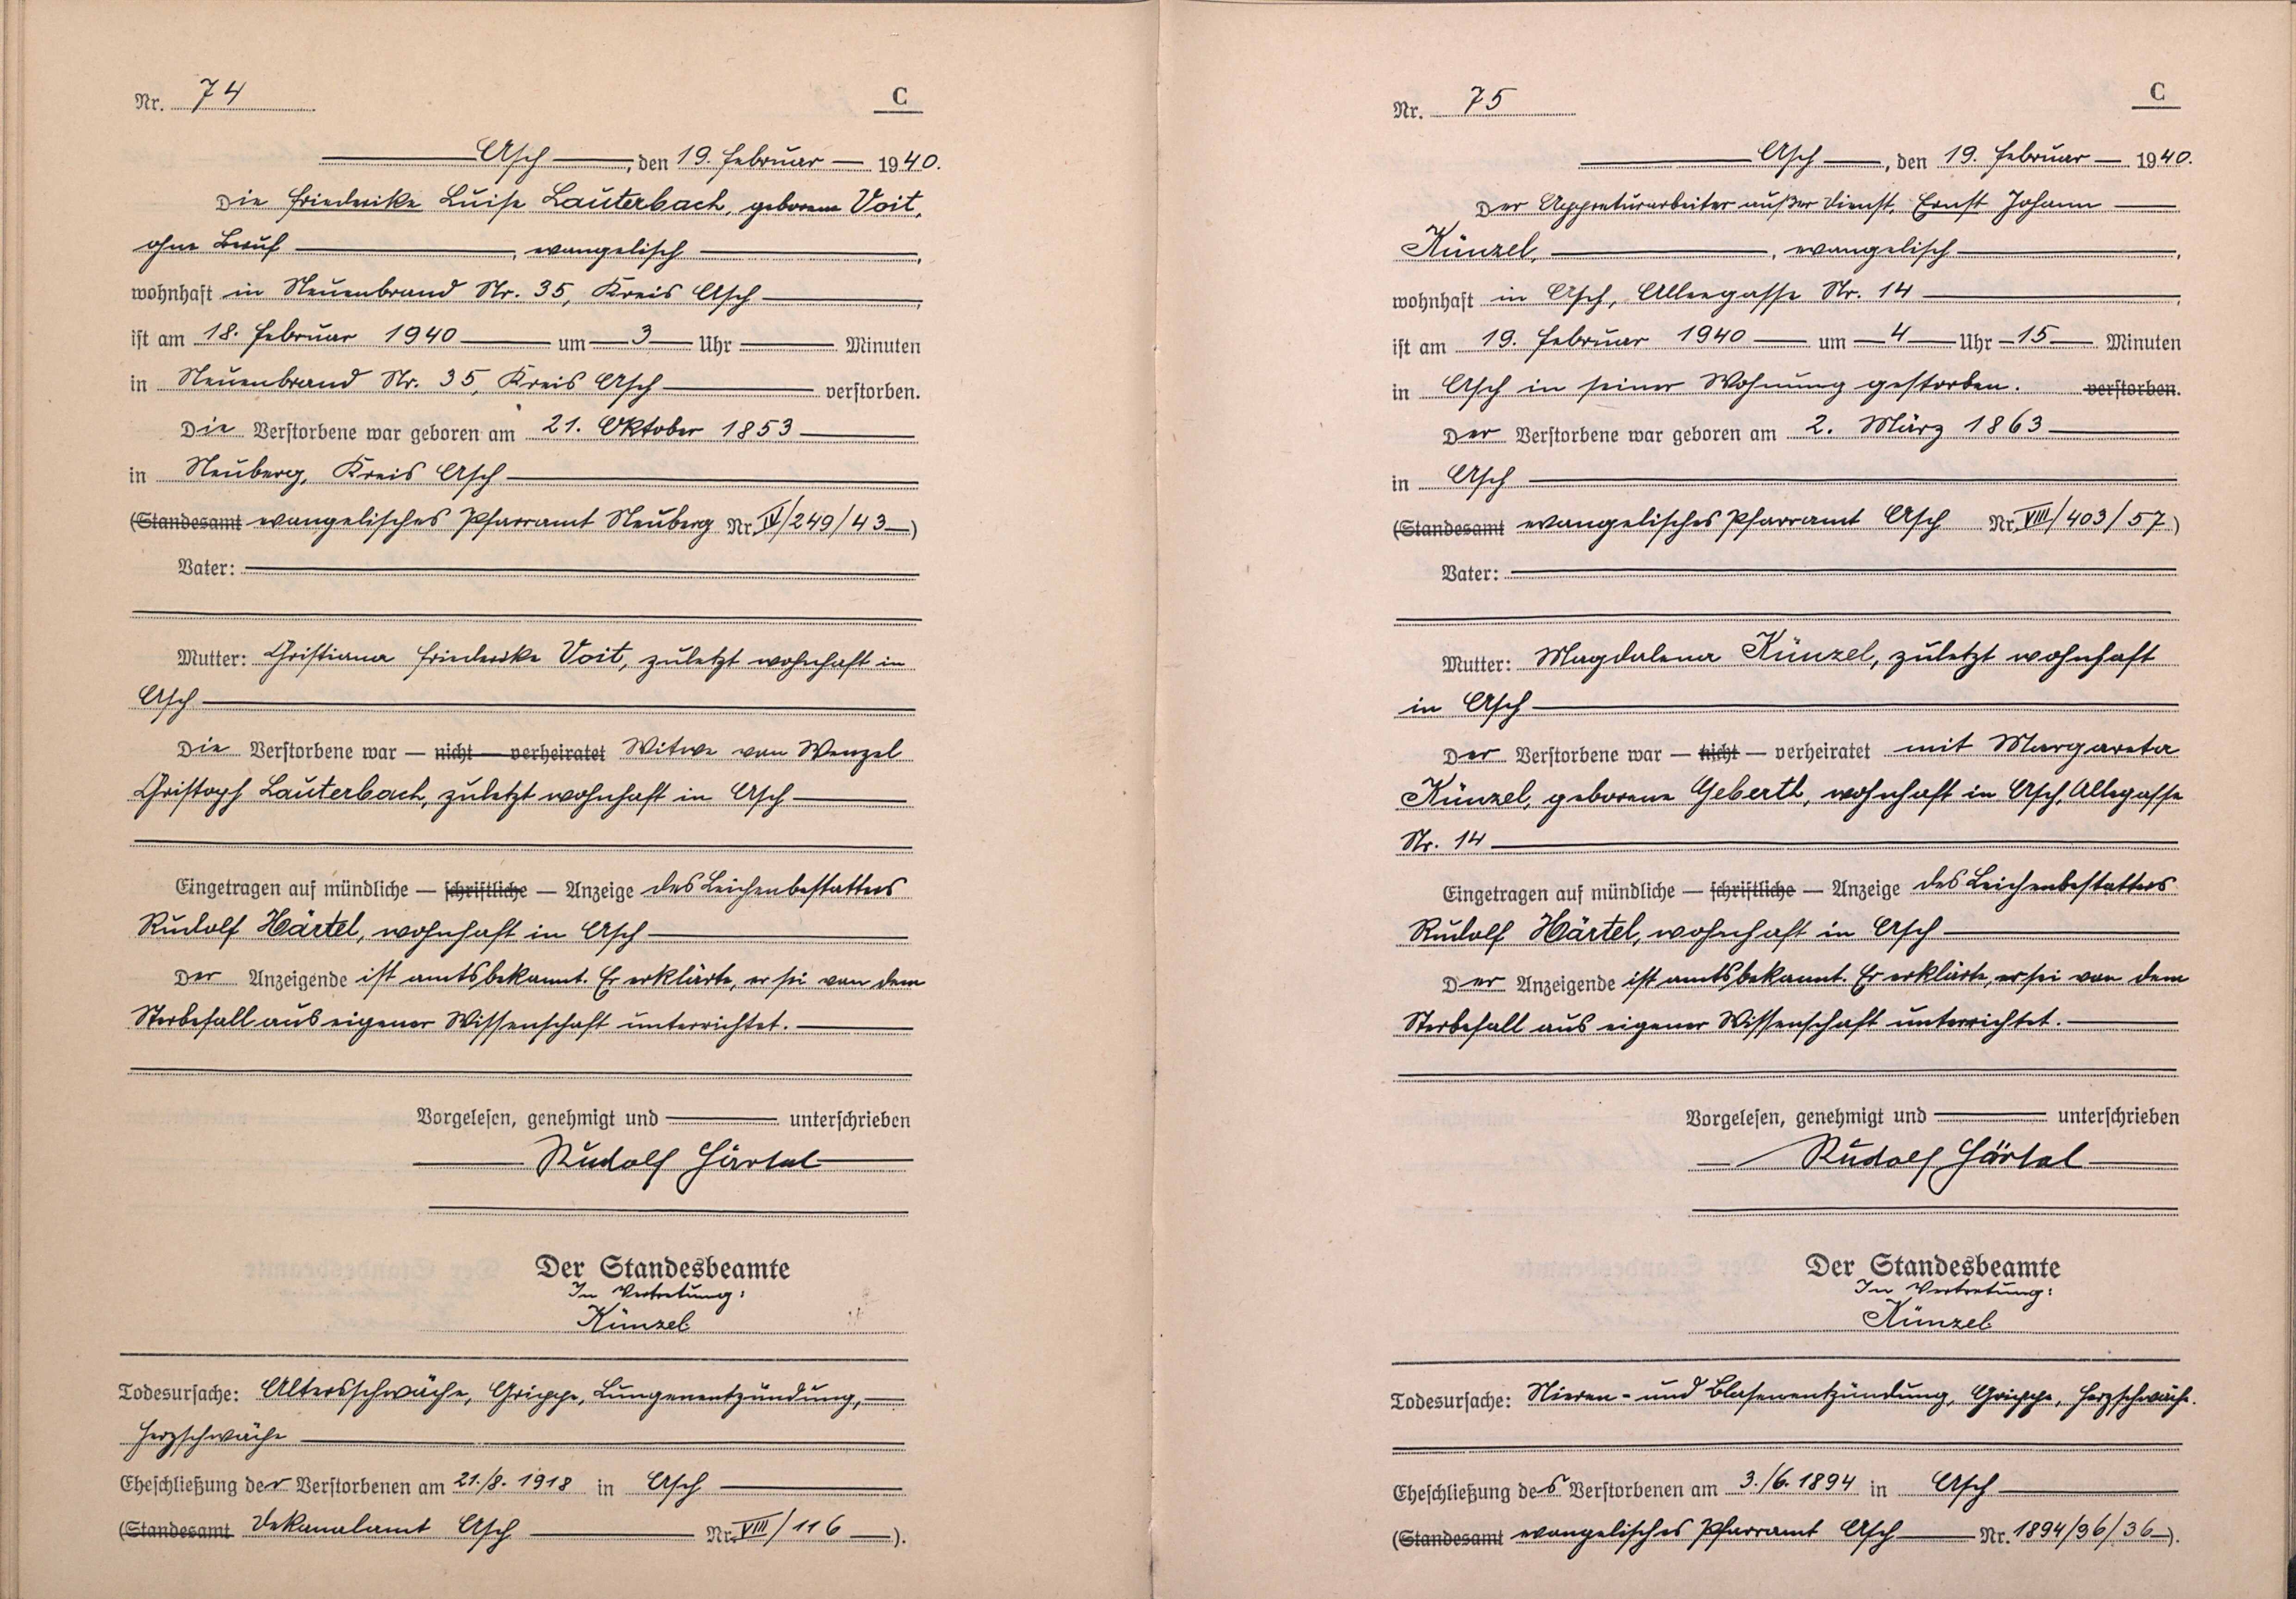 Nr. 74
C
Asch, den 19. Februar 1940.
Die Friederike Luise Lauterbach, geborene Voit,
ohne Beruf, evangelisch,
wohnhaft in Neuenbrand Nr. 35, Kreis Asch,
ist am 18. Februar 1940 um 3 Uhr Minuten
in Neuenbrand Nr. 35, Kreis Asch verstorben.
Die Verstorbene war geboren am 21. Oktober 1853
in Neuberg, Kreis Asch
(Standesamt evangelisches Pfarramt Neuberg Nr. IV/249/43)
Vater:
Mutter: Christiana Friederike Voit, zuletzt wohnhaft in
Asch
Die Verstorbene war — nicht — verheiratet Witwe von Wenzel
Christoph Lauterbach, zuletzt wohnhaft in Asch
Eingetragen auf mündliche — schriftliche — Anzeige des Leichenbestatters
Rudolf Härtel, wohnhaft in Asch
Der Anzeigende ist amtsbekannt. Er erklärte, er sei von dem
Sterbefall aus eigener Wissenschaft unterrichtet.
Vorgelesen, genehmigt und unterschrieben
Rudolf Härtel
Der Standesbeamte
In Vertretung:
Künzel
Todesursache: Altersschwäche, Grippe, Lungenentzündung,
Herzschwäche
Eheschließung der Verstorbenen am 21./8. 1918 in Asch
(Standesamt Dekanalamt Asch Nr. VIII/116).
Nr. 75
C
Asch, den 19. Februar 1940.
Der Appreturarbeiter außer Dienst, Ernst Johann
Künzel, evangelisch,
wohnhaft in Asch, Alleegasse Nr. 14,
ist am 19. Februar 1940 um 4 Uhr 15 Minuten
in Asch in seiner Wohnung gestorben. verstorben.
Der Verstorbene war geboren am 2. März 1863
in Asch
(Standesamt evangelisches Pfarramt Asch Nr. VIII/403/57)
Vater:
Mutter: Magdalena Künzel, zuletzt wohnhaft
in Asch
Der Verstorbene war — nicht — verheiratet mit Margareta
Künzel, geborene Geberth, wohnhaft in Asch, Allegasse
Nr. 14
Eingetragen auf mündliche — schriftliche — Anzeige des Leichenbestatters
Rudolf Härtel, wohnhaft in Asch
Der Anzeigende ist amtsbekannt. Er erklärte, er sei von dem
Sterbefall aus eigener Wissenschaft unterrichtet.
Vorgelesen, genehmigt und unterschrieben
Rudolf Härtel
Der Standesbeamte
In Vertretung:
Künzel
Todesursache: Nieren- und Blasenentzündung, Grippe, Herzschwäche.
Eheschließung des Verstorbenen am 3./6. 1894 in Asch
(Standesamt evangelisches Pfarramt Asch Nr. 1894/96/36).